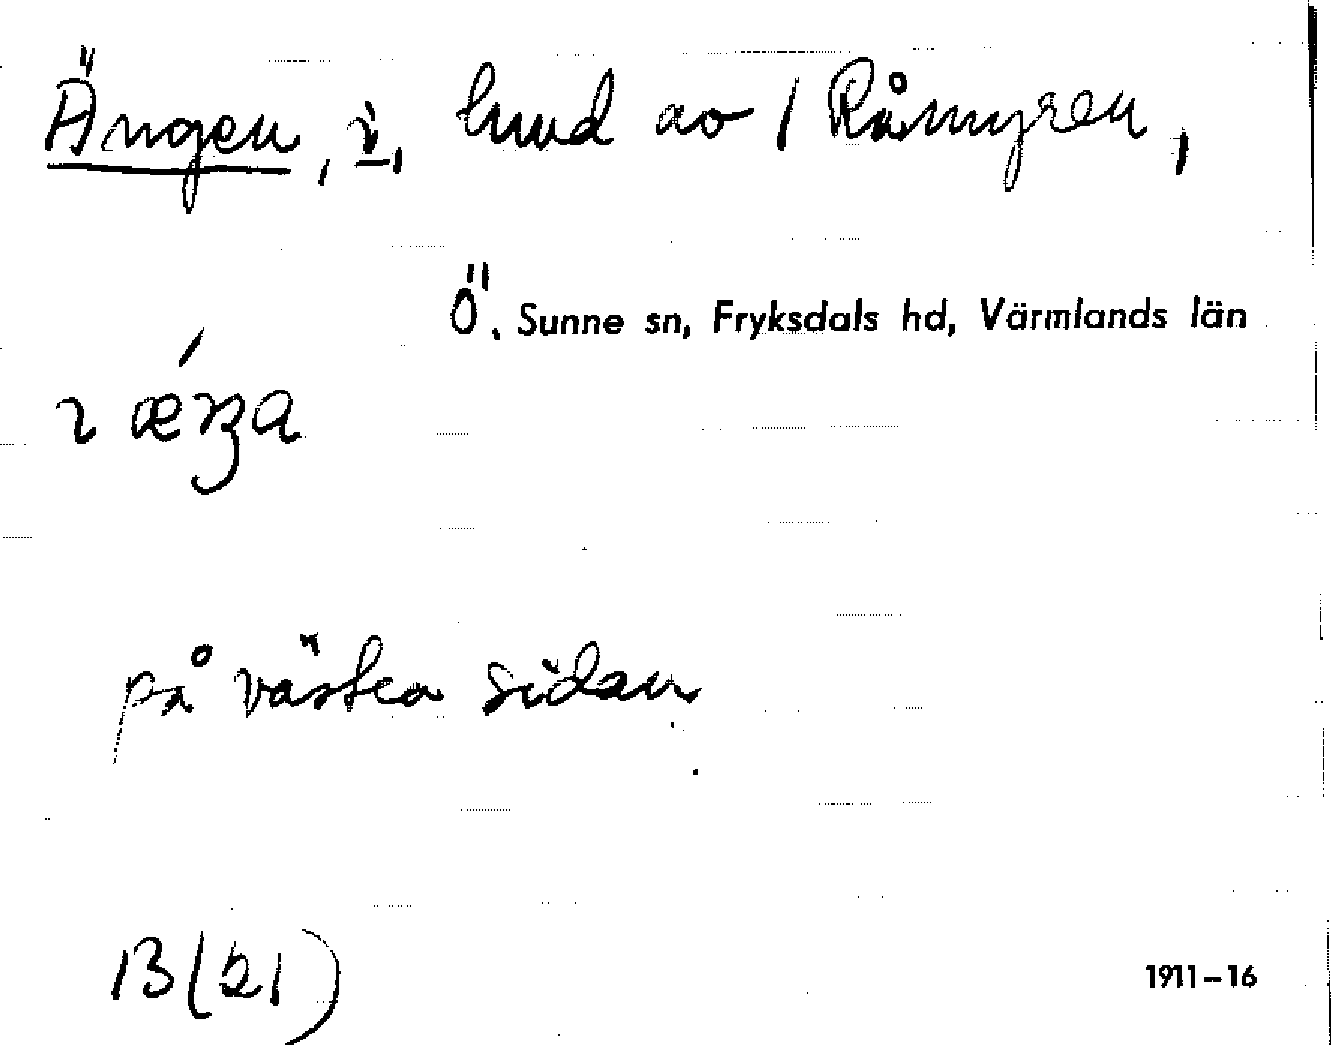 Ängen, i, hmd av / Råmyren,
Ö. Sunne sn, Fryksdals hd, Värmlands län
ɩ ǽŋa
på västra sidan
B (21)
1911–16